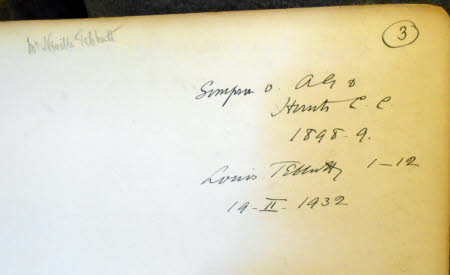 Mr Neville Tebbutt
3
Simpson v. A.G. &
Hunts C.C
1898-9.
Louis Tebbutt 1-12
19-II-1932